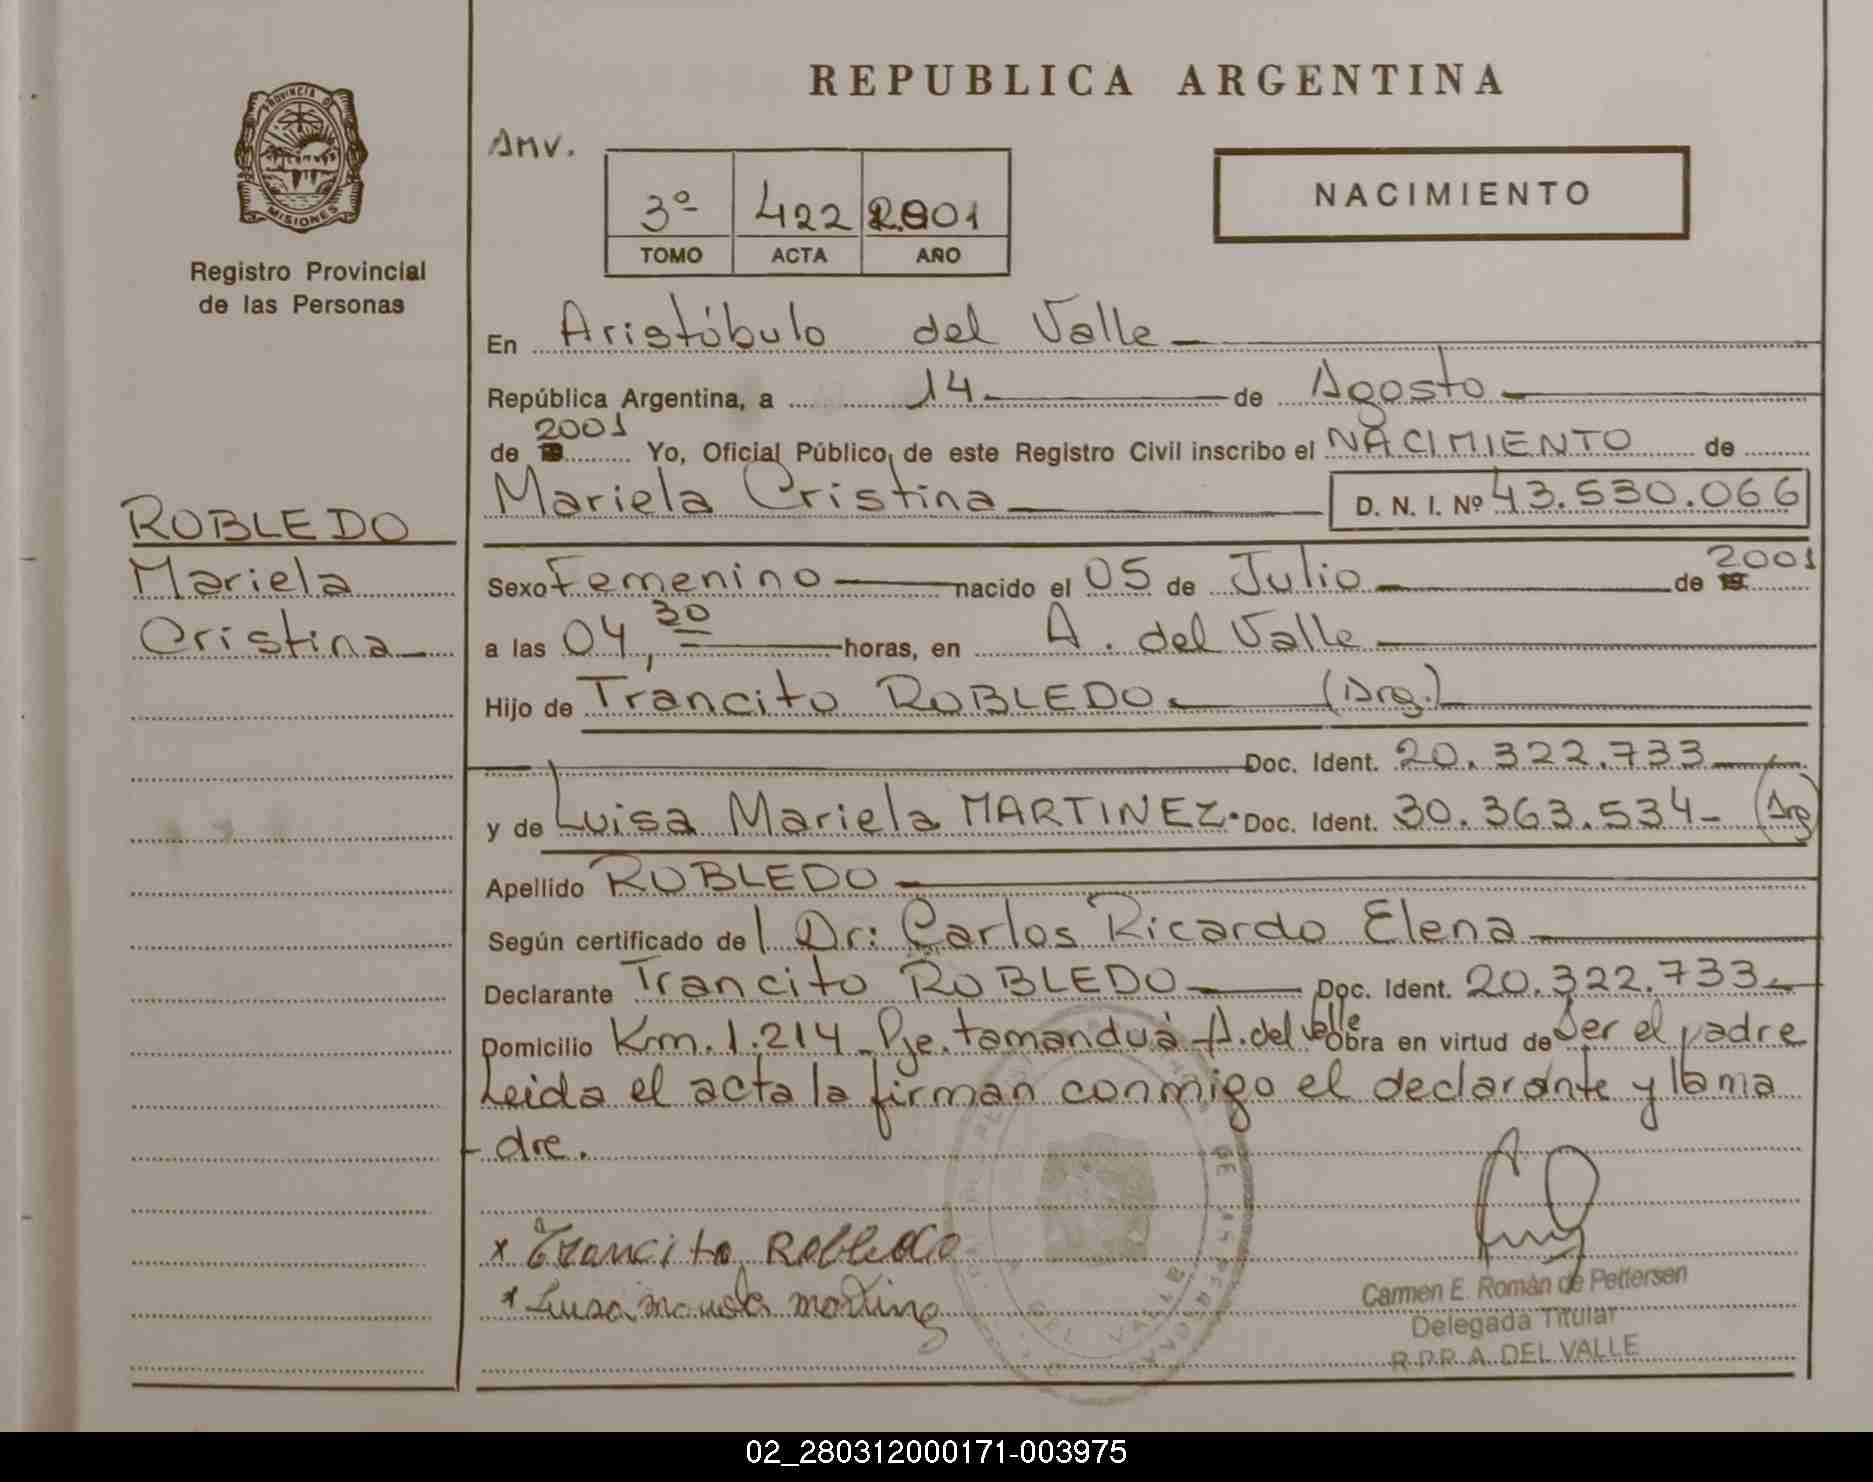 REPUBLICA ARGENTINA
PROVINCIA DE
MISIONES
Registro Provincial
de las Personas
Anv.
3º 422 2001
TOMO ACTA AÑO
NACIMIENTO
En Aristóbulo del Valle
República Argentina, a 14 de Agosto
de 2001 Yo, Oficial Público, de este Registro Civil inscribo el NACIMIENTO de
Mariela Cristina D. N. I. Nº 43.530.066
ROBLEDO
Mariela
Cristina
Sexo Femenino nacido el 05 de Julio de 2001
a las 04,30 horas, en A. del Valle
Hijo de Trancito ROBLEDO (Arg.)
Doc. Ident. 20.322.733
y de Luisa Mariela MARTINEZ. Doc. Ident. 30.363.534 (Arg)
Apellido ROBLEDO
Según certificado de l Dr: Carlos Ricardo Elena
Declarante Trancito ROBLEDO Doc. Ident. 20.322.733
Domicilio Km. 1.214 Pje. tamanduá A. del Valle Obra en virtud de Ser el padre
Leida el acta la firman conmigo el declarante y la ma
-dre.
x Trancito Robledo
Carmen E. Román de Pettersen
Delegada Titular
R.P.P. A. DEL VALLE
02_280312000171-003975